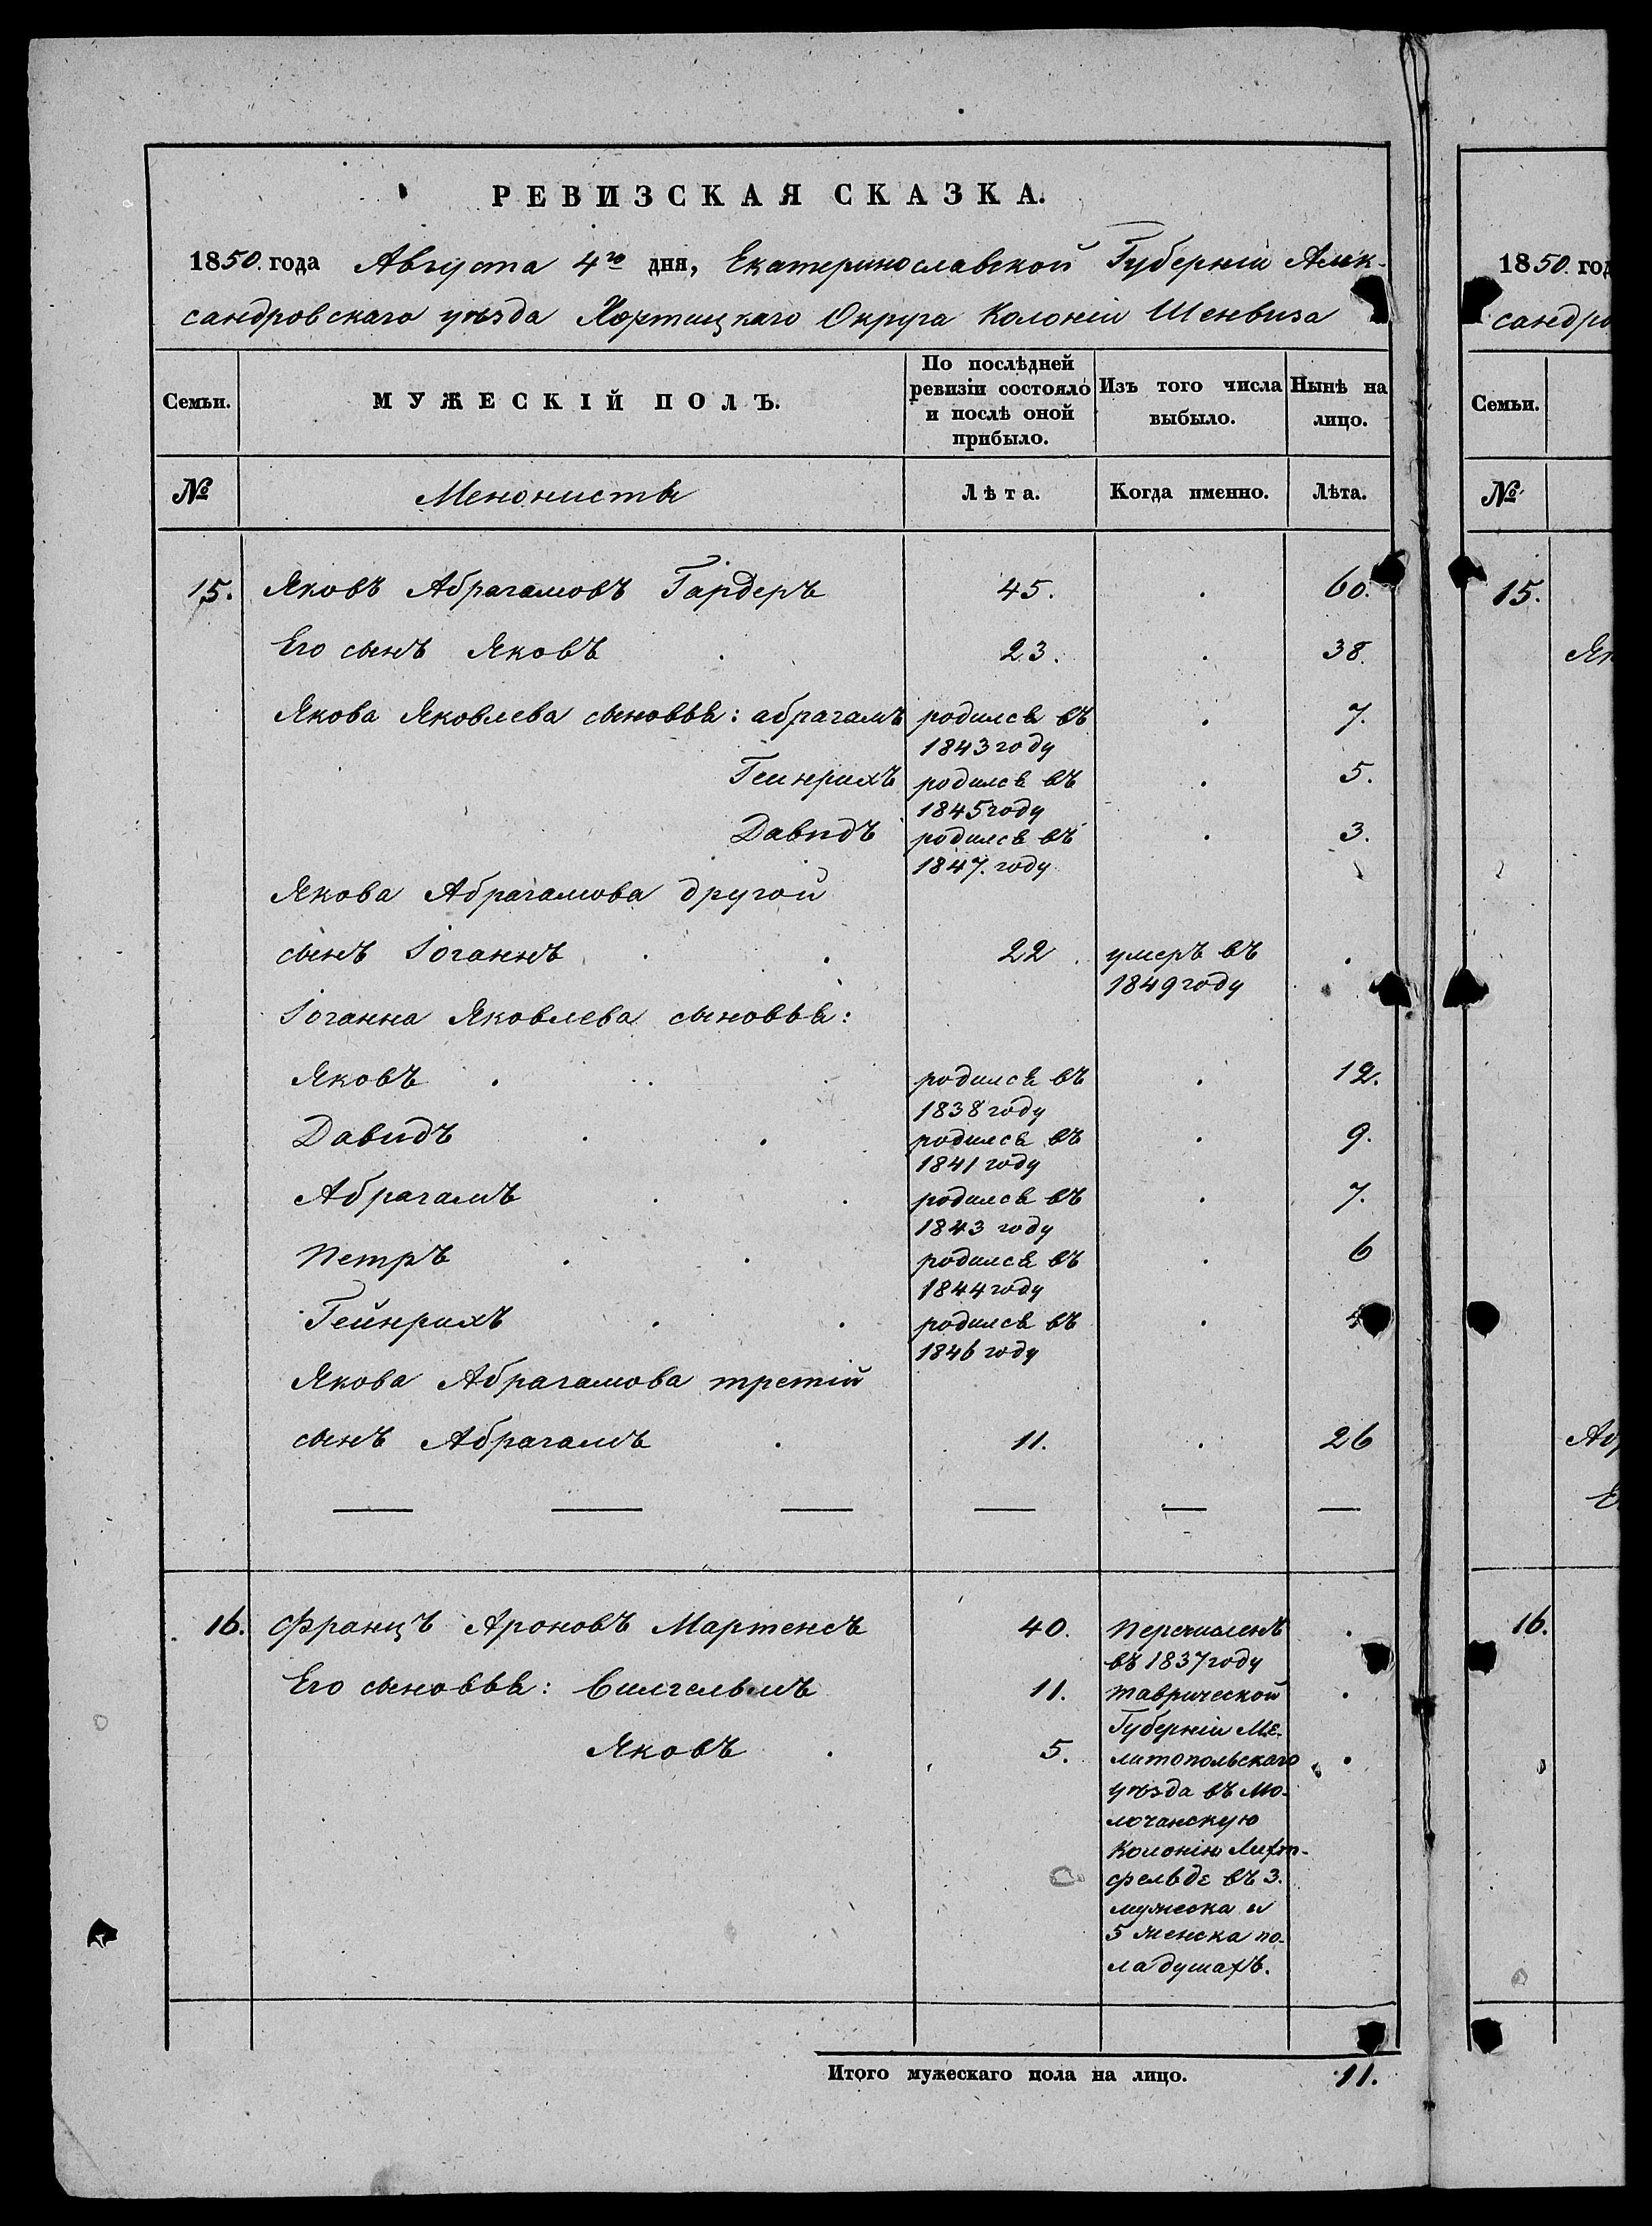 РЕВИЗСКАЯ СКАЗКА.
1850. года Августа 4го дня, Екатеринославской Губерніи Алек-
сандровскаго уѣзда Хортицкаго Округа Колоніи Шенвиза
Семьи.
МУЖЕСКІЙ ПОЛЪ.
По послѣдней
ревизіи состояло
и послѣ оной
прибыло.
Изъ того числа
выбыло.
Нынѣ на
лицо.
№
Менонисты
Лѣта.
Когда именно.
Лѣта.
15. Яковъ Абрагамовъ Гардеръ 45. 60.
Его сынъ Яковъ 23. 38.
Якова Яковлева сыновья: абрагамъ родился въ 7.
1843 году
Геинрихъ родился въ 5.
1845 году
Давидъ родился въ 3.
1847. году
Якова Абрагамова другой
сынъ Іоганнъ 22 умеръ въ
1849 году
Іоганна Яковлева сыновья:
Яковъ родился въ 12.
1838 году
Давидъ родился въ 9.
1841 году
Абрагамъ родился въ 7.
1843 году
Петръ родился въ 6
1844 году
Гейнрихъ родился въ 4
1846 году
Якова Абрагамова третій
сынъ Абрагамъ 11. 26
16. Францъ Ароновъ Мартенсъ 40. Перечисленъ
въ 1837 году
Его сыновья: Вилгельмъ 11. Таврической
Губерніи Ме-
Яковъ 5. литопольскаго
уѣзда въ Мо-
лочанскую
Колонію Лихт-
фельде въ 3.
мужеска и
5 женска по-
ла душахъ.
Итого мужескаго пола на лицо. 11.
1850. год
сандро
Семьи.
№
15.
Як
16.